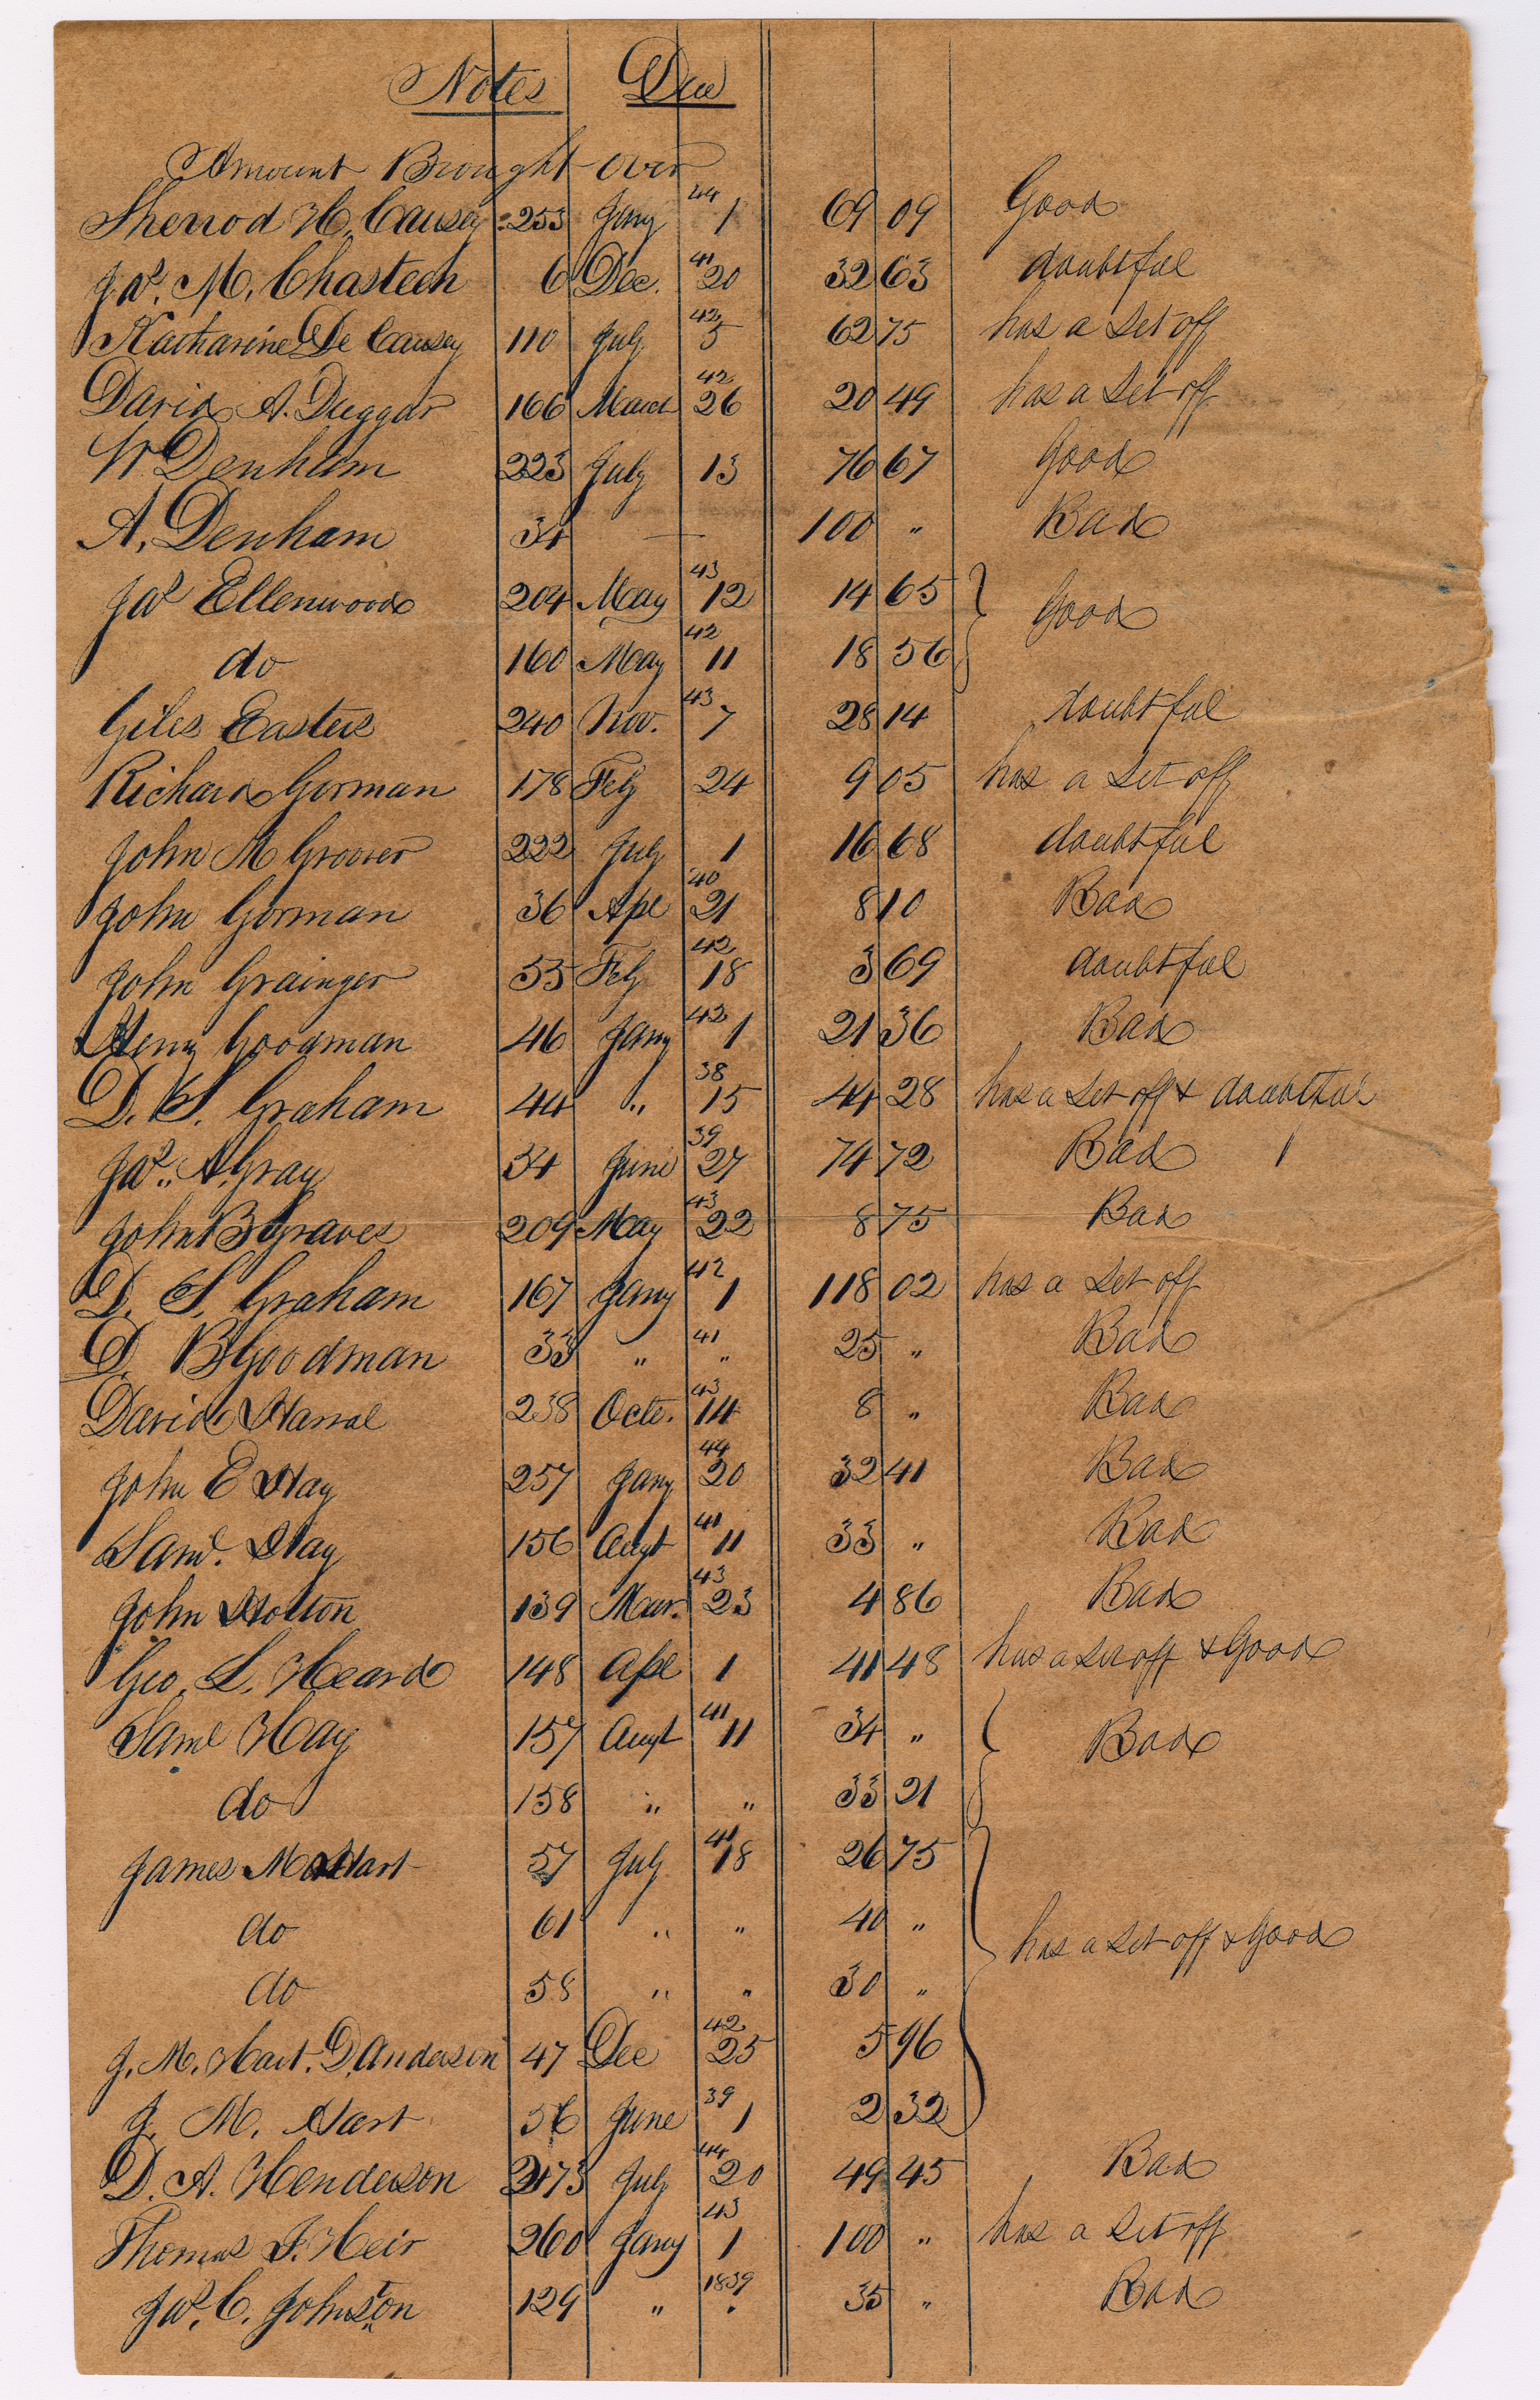 Notes Due
Amount Brought over
Sherrod H. Causey 253 Jany 44 1 69 09 Good
Jas. M. Chasteen 6 Dec. 41 20 32 63 doubtful
Katharine De Causey 110 July 42 5 62 75 has a Set off
David A. Duggar 166 March 42 26 20 49 has a Set off
W Denham 223 July 13 76 67 Good
A. Denham 34 — 100 " Bad
Jas Ellenwood 204 May 43 12 14 65 Good
do 160 May 42 11 18 56
Giles Easters 240 Nov. 43 7 28 14 doubtful
Richard Gorman 178 Feby 24 9 05 has a Set off
John M Groover 222 July 1 16 68 doubtful
John Gorman 36 Apl 40 21 8 10 Bad
John Grainger 55 Feby 42 18 3 69 doubtful
Henry Goodman 46 Jany 42 1 21 36 Bad
D. S. Graham 44 " 38 15 44 28 has a Set off & doubtful
Jas. A. Gray 34 June 39 27 74 72 Bad
John B Graves 209 May 43 22 8 75 Bad
D. S. Graham 167 Jany 42 1 118 02 has a Set off
D. B Goodman 33 " 41 " 25 " Bad
David Harral 238 Octr. 43 14 8 " Bad
John E Hay 257 Jany 44 20 32 41 Bad
Saml. Hay 156 Augt 41 11 33 " Bad
John Holton 139 Mar. 43 23 4 86 Bad
Geo. L. Heard 148 Apl 1 41 48 has a Set off & Good
Saml Hay 157 Augt 41 11 34 " Bad
do 158 " " 33 21
James M Hart 57 July 41 18 26 75
do 61 " " 40 " has a Set off & Good
do 58 " " 30 "
J. M. Hart. D. Anderson 47 Dec 42 25 5 96
J. M. Hart 56 June 39 1 2 32
D. A. Henderson 273 July 44 20 49 45 Bad
Thomas J. Heir 260 Jany 43 1 100 " has a Set off
Jas. C. Johnston 129 " 1839 " 35 " Bad